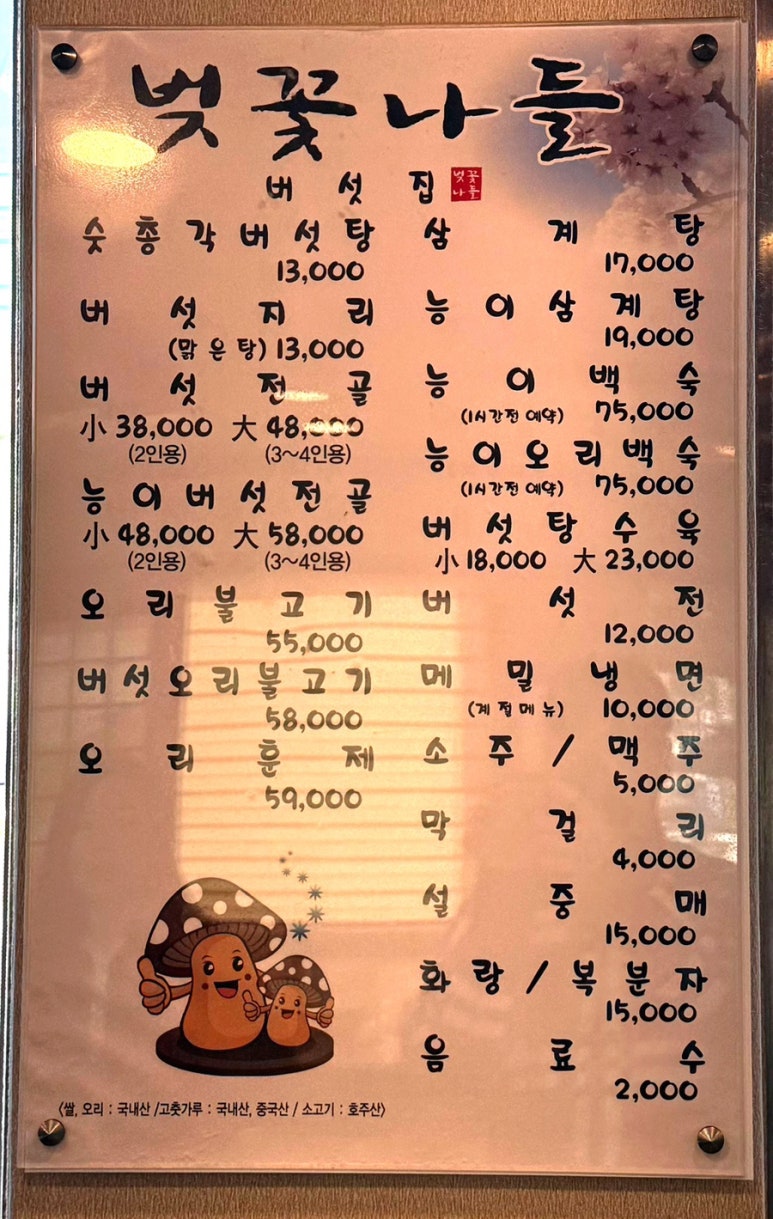 벚꽃나들
버섯집
벚꽃
나들
숫총각버섯탕
13,000
버섯지리
(맑은탕) 13,000
버섯전골
小 38,000 大 48,000
(2인용) (3~4인용)
능이버섯전골
小 48,000 大 58,000
(2인용) (3~4인용)
오리불고기
55,000
버섯오리불고기
58,000
오리훈제
59,000
삼계탕
17,000
능이삼계탕
19,000
능이백숙
(1시간전 예약) 75,000
능이오리백숙
(1시간전 예약) 75,000
버섯탕수육
小 18,000 大 23,000
버섯전
12,000
메밀냉면
(계절메뉴) 10,000
소주/맥주
5,000
막걸리
4,000
설중매
15,000
화랑/복분자
15,000
음료수
2,000
〈쌀, 오리 : 국내산 /고춧가루 : 국내산, 중국산 / 소고기 : 호주산〉